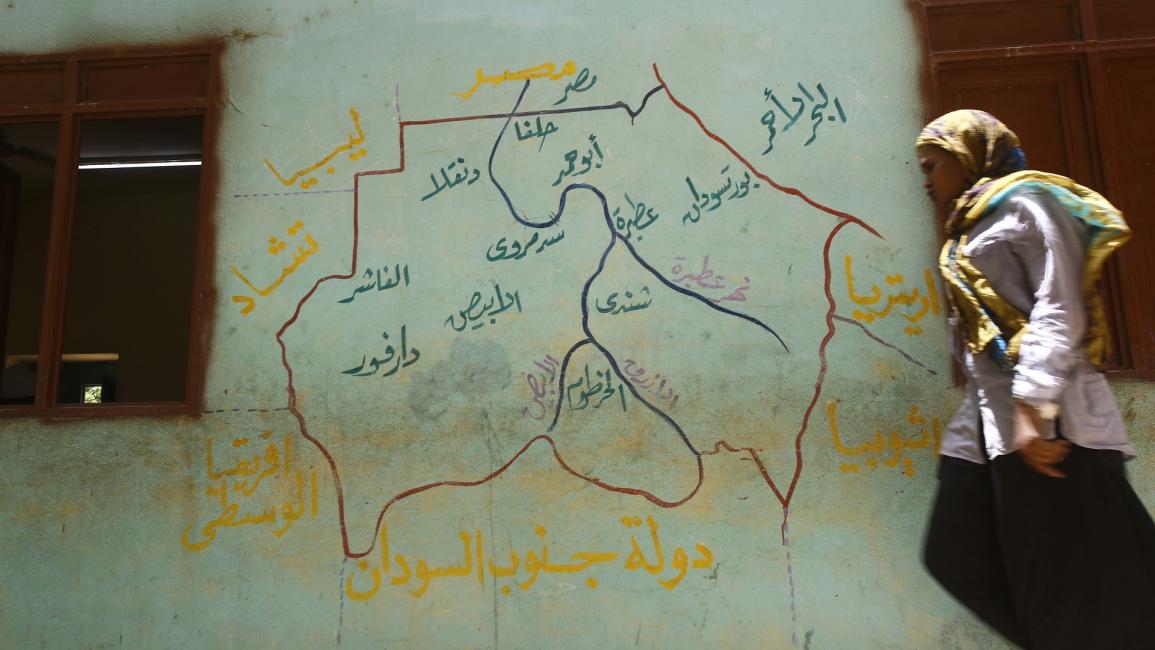 مصر
مصر
البحر الأحمر
ليبيا
حلفا
أبو حمد
دنقلا
بورتسودان
عطبرة
سد مروى
تشاد
الفاشر
نهر عطبرة
اريتريا
شندى
الابيض
دارفور
الابيض
الخرطوم
الازرق
اثيوبيا
افريقيا
الوسطى
دولة جنوب السودان